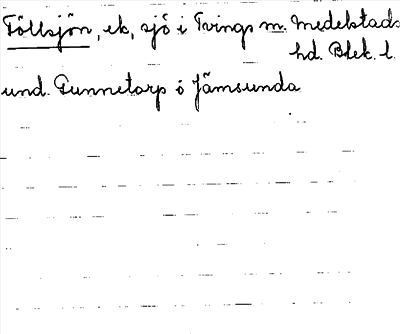 Töllsjön, ek, sjö i Tvings m. Medelstads
hd. Blek. l.
und. Gunnetorp o Jämsunda